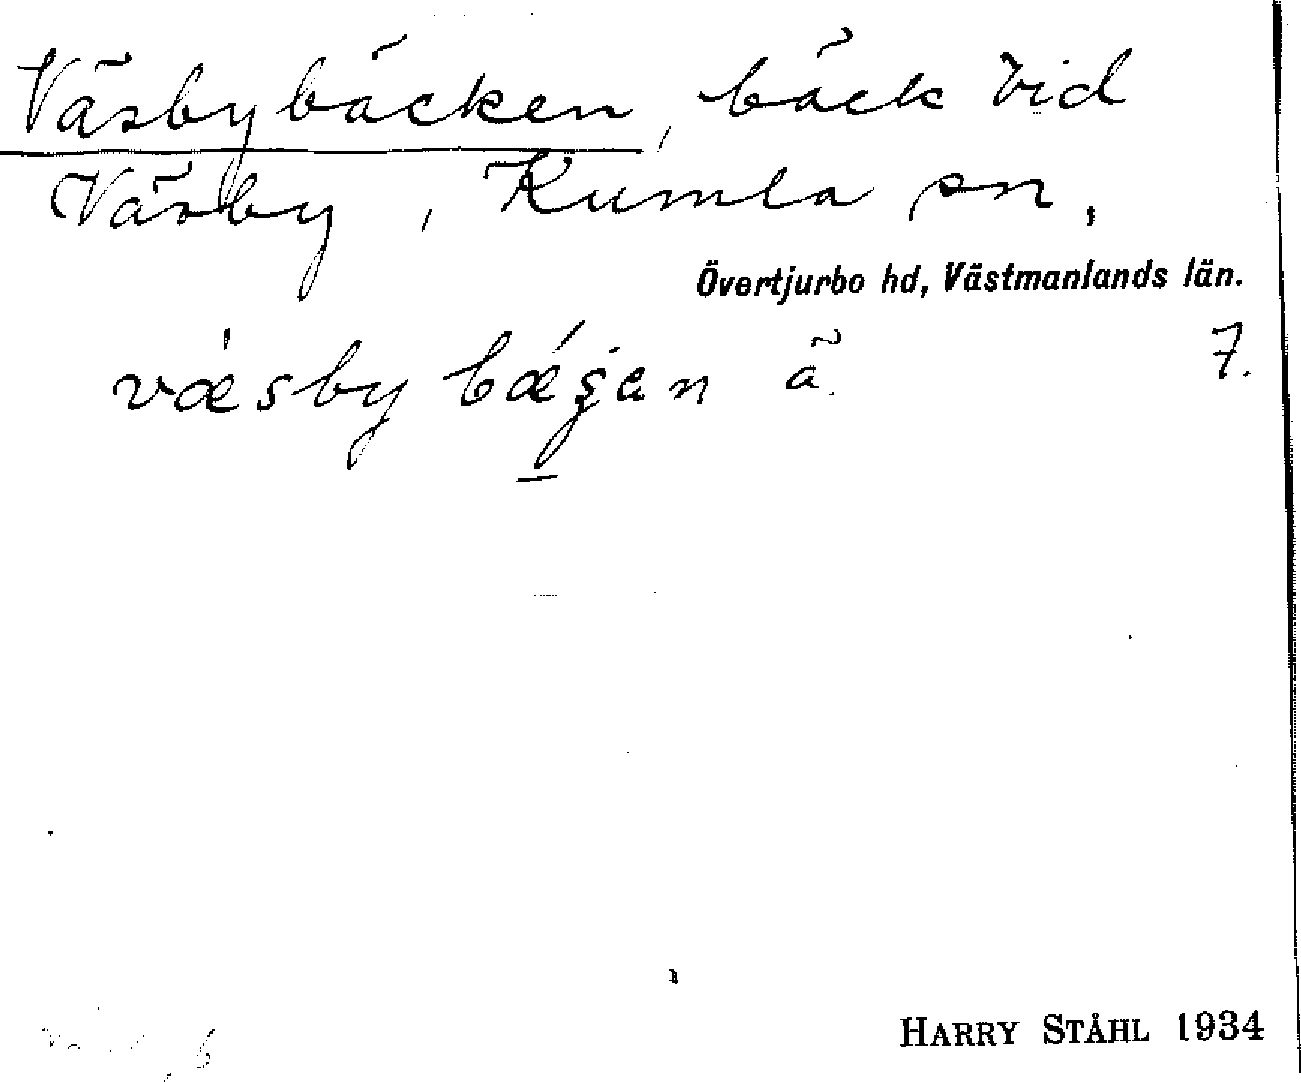 Väsbybäcken, bäck vid
Väsby, Kumla sn,
Övertjurbo hd, Västmanlands län.
væ̍sby bǽʒan ä 7.
HARRY STÅHL 1934